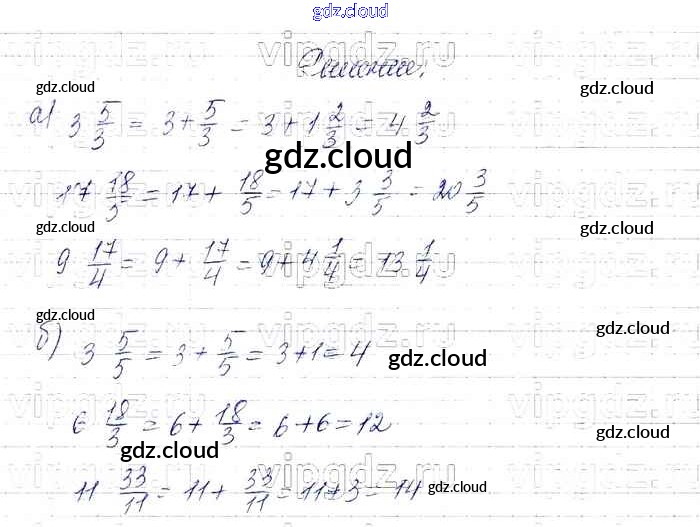 gdz.cloud
vipgdz.ru vipgdz.ru
Решение.
gdz.cloud gdz.cloud
а) 3 5/3 = 3 + 5/3 = 3 + 1 2/3 = 4 2/3
vipgdz.ru vipgdz.ru
gdz.cloud
17 18/5 = 17 + 18/5 = 17 + 3 3/5 = 20 3/5
gdz.cloud gdz.cloud
vipgdz.ru vipgdz.ru
9 17/4 = 9 + 17/4 = 9 + 4 1/4 = 13 1/4
gdz.cloud gdz.cloud
vipgdz.ru vipgdz.ru
б) 3 5/5 = 3 + 5/5 = 3 + 1 = 4
gdz.cloud
vipgdz.ru vipgdz.ru
6 18/3 = 6 + 18/3 = 6 + 6 = 12
gdz.cloud gdz.cloud
vipgdz.ru vipgdz.ru
11 33/11 = 11 + 33/11 = 11 + 3 = 14
gdz.cloud